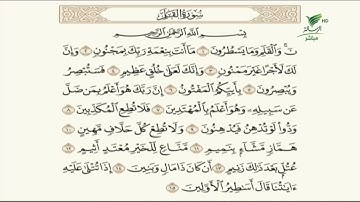 سُورَةُ الْقَلَمِ
بِسْمِ اللَّهِ الرَّحْمَٰنِ الرَّحِيمِ
نٓ ۚ وَالْقَلَمِ وَمَا يَسْطُرُونَ ١ مَا أَنتَ بِنِعْمَةِ رَبِّكَ بِمَجْنُونٍ ٢ وَإِنَّ
لَكَ لَأَجْرًا غَيْرَ مَمْنُونٍ ٣ وَإِنَّكَ لَعَلَىٰ خُلُقٍ عَظِيمٍ ٤ فَسَتُبْصِرُ
وَيُبْصِرُونَ ٥ بِأَييِّكُمُ الْمَفْتُونُ ٦ إِنَّ رَبَّكَ هُوَ أَعْلَمُ بِمَن ضَلَّ
عَن سَبِيلِهِ وَهُوَ أَعْلَمُ بِالْمُهْتَدِينَ ٧ فَلَا تُطِعِ الْمُكَذِّبِينَ ٨
وَدُّوا لَوْ تُدْهِنُ فَيُدْهِنُونَ ٩ وَلَا تُطِعْ كُلَّ حَلَّافٍ مَّهِينٍ ١٠
هَمَّازٍ مَّشَّاءٍ بِنَمِيمٍ ١١ مَّنَّاعٍ لِّلْخَيْرِ مُعْتَدٍ أَثِيمٍ ١٢
عُتُلٍّ بَعْدَ ذَٰلِكَ زَنِيمٍ ١٣ أَن كَانَ ذَا مَالٍ وَبَنِينَ ١٤ إِذَا تُتْلَىٰ عَلَيْهِ
آيَاتُنَا قَالَ أَسَاطِيرُ الْأَوَّلِينَ ١٥
HD
مباشر